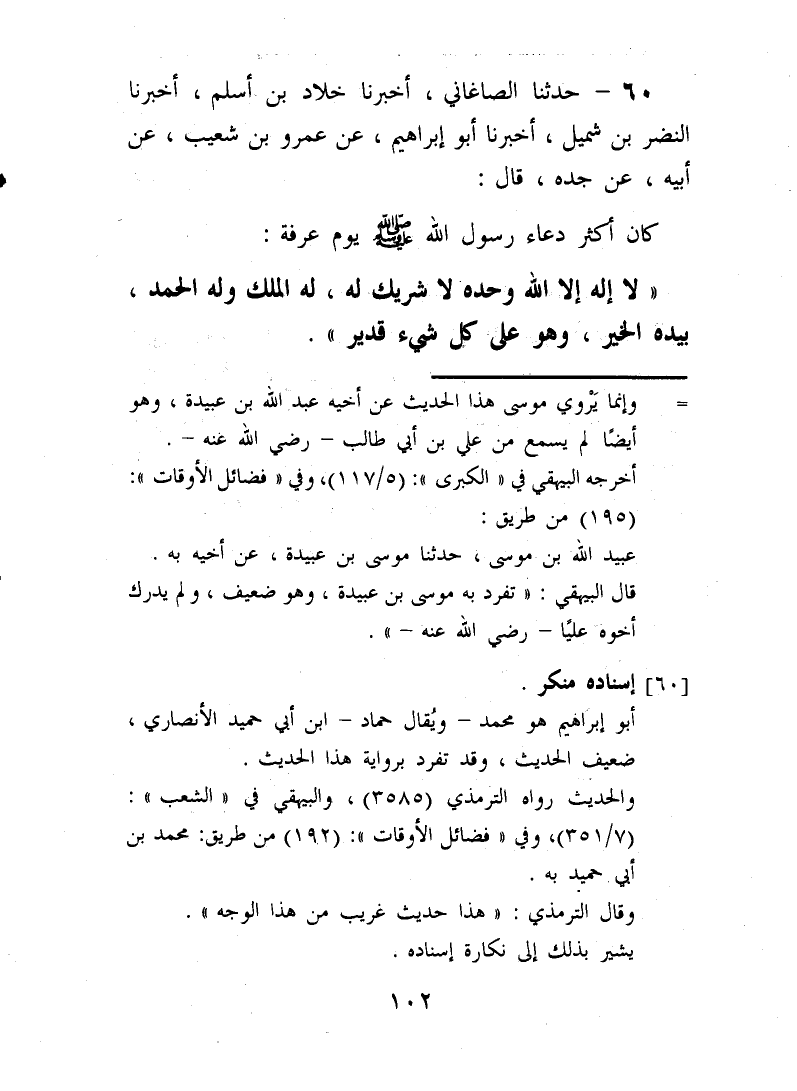 ٦٠ – حدثنا الصاغاني ، أخبرنا خلاد بن أسلم ، أخبرنا
النضر بن شميل ، أخبرنا أبو إبراهيم ، عن عمرو بن شعيب ، عن
أبيه ، عن جده ، قال :
كان أكثر دعاء رسول الله ﷺ يوم عرفة :
« لا إله إلا الله وحده لا شريك له ، له الملك وله الحمد ،
بيده الخير ، وهو على كل شيء قدير » .
= وإنما يَرْوي موسى هذا الحديث عن أخيه عبد الله بن عبيدة ، وهو
أيضًا لم يسمع من علي بن أبي طالب – رضي الله عنه – .
أخرجه البيهقي في « الكبرى »: (١١٧/٥)، وفي « فضائل الأوقات »:
(١٩٥) من طريق :
عبيد الله بن موسى ، حدثنا موسى بن عبيدة ، عن أخيه به .
قال البيهقي : « تفرد به موسى بن عبيدة ، وهو ضعيف ، ولم يدرك
أخوه عليًا – رضي الله عنه – » .
[٦٠] إسناده منكر .
أبو إبراهيم هو محمد – ويُقال حماد – ابن أبي حميد الأنصاري ،
ضعيف الحديث ، وقد تفرد برواية هذا الحديث .
والحديث رواه الترمذي (٣٥٨٥) ، والبيهقي في « الشعب » :
(٣٥١/٧)، وفي « فضائل الأوقات »: (١٩٢) من طريق: محمد بن
أبي حميد به .
وقال الترمذي : « هذا حديث غريب من هذا الوجه » .
يشير بذلك إلى نكارة إسناده .
١٠٢